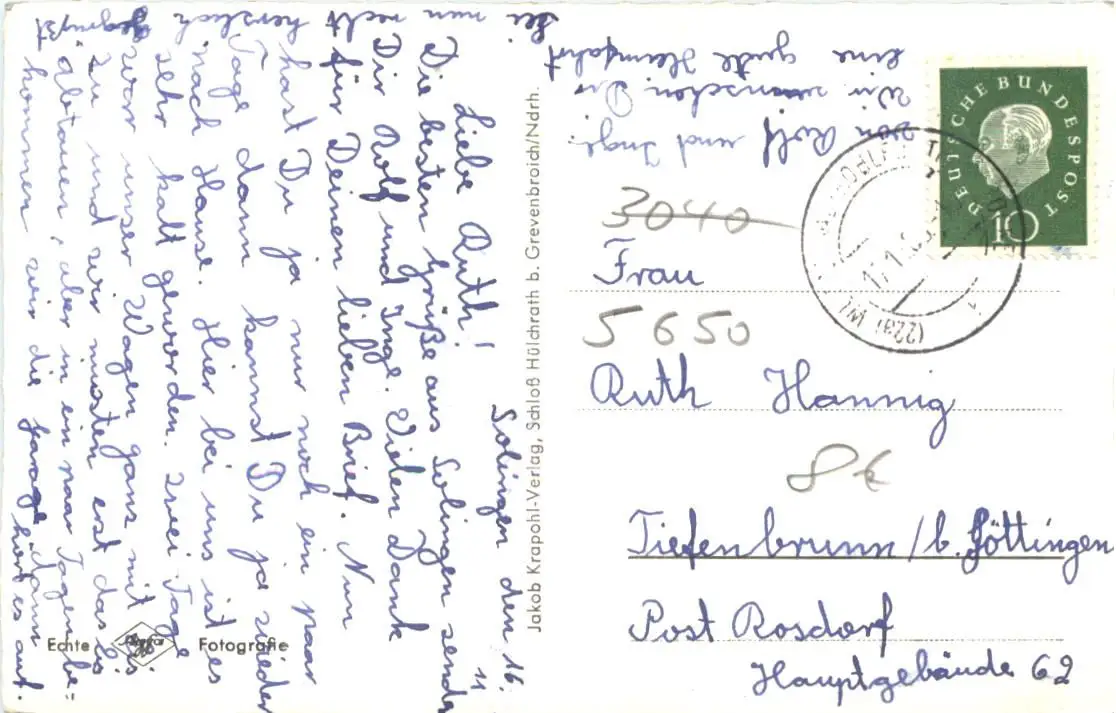 Solingen den 16.
11
Liebe Ruth!
Die besten Grüße aus Solingen senden
Dir Rolf und Inge. Vielen Dank
für Deinen lieben Brief. Nun
hast Du ja nur noch ein paar
Tage dann kannst Du ja wieder
nach Hause. Hier bei uns ist es
sehr kalt geworden. Zwei Tage
war unser Wagen ganz mit Eis
zu und wir musten erst das Eis
abtauen, aber in ein paar Tagen be=
kommen wir die Garage dann hört es auf.
Sei nun recht herzlich gegrüßt
von Rolf und Inge.
Wir wünschen Dir
eine gute Heimfahrt
Jakob Krapohl-Verlag, Schloß Hülchrath b. Grevenbroich/Ndrh.
Echte Agfa Fotografie
DEUTSCHE BUNDESPOST
10
(22a)
3040
Frau
5650
Ruth Hannig
8€
Tiefenbrunn/b. Göttingen
Post Rosdorf
Hauptgebäude 62